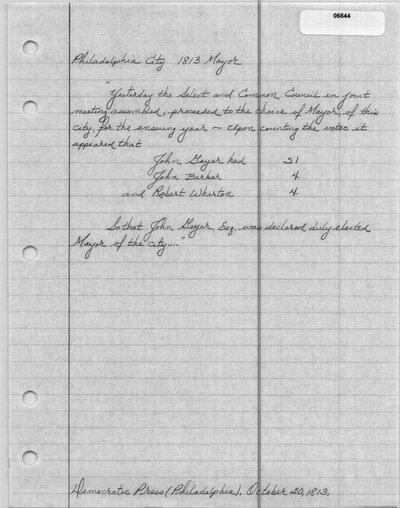 06644
Philadelphia City 1813 Mayor
"Yesterday the Select and Common Council in joint
meeting assembled, proceeded to the choice of Mayor, of this
city, for the ensuing year — Upon counting the votes it
appeared that
John Geyer had 21
John Barker 4
and Robert Wharton 4
So that John Geyer, Esq. was declared duly elected
Mayor of the city...."
Democratic Press (Philadelphia). October 20, 1813.